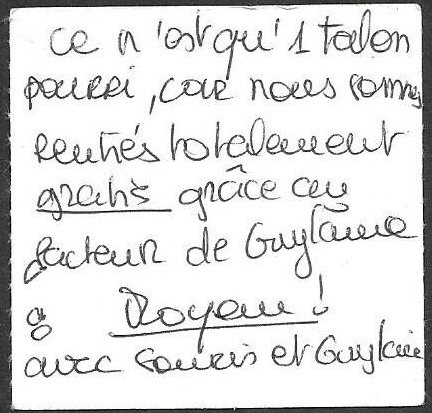 ce n'est qu'1 talon
pourri, car nous sommes
rentrés totalement
gratis grâce au
facteur de Guylaine
à Royan !
avec Souris et Guylaine